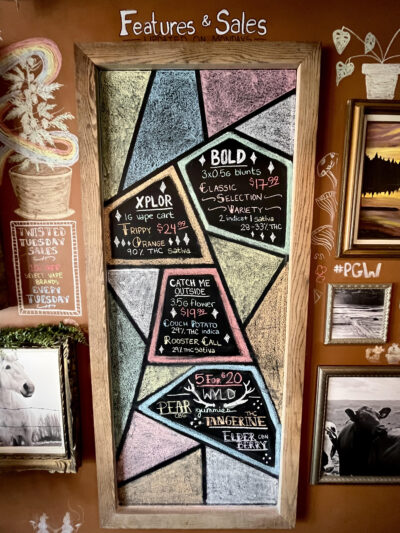 Features & Sales
UPDATED ON MONDAYS
BOLD
3x0.5g blunts
Classic $17.99
Selection
Variety
2 indica 1 sativa
28-33% THC
XPLOR
1G vape cart
Trippy $24.99
Orange
90% THC Sativa
CATCH ME
OUTSIDE
3.5G flower
$19.99
Couch Potato
29% THC indica
Rooster Call
29% THC sativa
5 FOR $20
WYLD
PEAR CBG
gummies
THC
TANGERINE
ELDER CBN
BERRY
TWISTED
TUESDAY
SALES
SELECT VAPE
BRANDS
EVERY
TUESDAY
#PGW